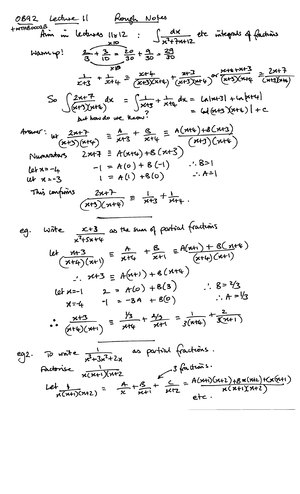 OBR2 Lecture 11 Rough Notes
Aim in lectures 11&12 : ∫ dx/(x²+7x+12) etc integrals of fractions
Warmup! 2/3 + 3/10 = 20/30 + 9/30 = 29/30
x10
x3
1/(x+3) + 1/(x+4) = (x+4)/((x+3)(x+4)) + (x+3)/((x+3)(x+4)) or (x+4+x+3)/((x+3)(x+4)) = (2x+7)/((x+3)(x+4))
So ∫ (2x+7)/((x+3)(x+4)) dx = ∫ 1/(x+3) + 1/(x+4) dx = ln|x+3| + ln|x+4|
but how do we know? = ln|(x+3)(x+4)| + c
Answer: let (2x+7)/((x+3)(x+4)) ≡ A/(x+3) + B/(x+4) ≡ (A(x+4) + B(x+3))/((x+3)(x+4))
Numerators 2x+7 ≡ A(x+4) + B(x+3)
let x=-4 -1 = A(0) + B(-1) ∴ B=1
let x=-3 1 = A(1) + B(0) ∴ A=1
This confirms (2x+7)/((x+3)(x+4)) ≡ 1/(x+3) + 1/(x+4).
eg. Write (x+3)/(x²+5x+4) as the sum of partial fractions
let (x+3)/((x+4)(x+1)) ≡ A/(x+4) + B/(x+1) ≡ (A(x+1) + B(x+4))/((x+4)(x+1))
∴ x+3 ≡ A(x+1) + B(x+4)
let x=-1 2 = A(0) + B(3) ∴ B = 2/3
x=-4 -1 = -3A + B(0) ∴ A = 1/3
∴ (x+3)/((x+4)(x+1)) ≡ (1/3)/(x+4) + (2/3)/(x+1) = 1/(3(x+4)) + 2/(3(x+1))
eg2. To write 1/(x³+3x²+2x) as partial fractions.
Factorise 1/(x(x+1)(x+2)) 3 fractions.
Let 1/(x(x+1)(x+2)) = A/x + B/(x+1) + C/(x+2) = (A(x+1)(x+2) + Bx(x+2) + Cx(x+1))/(x(x+1)(x+2))
etc.